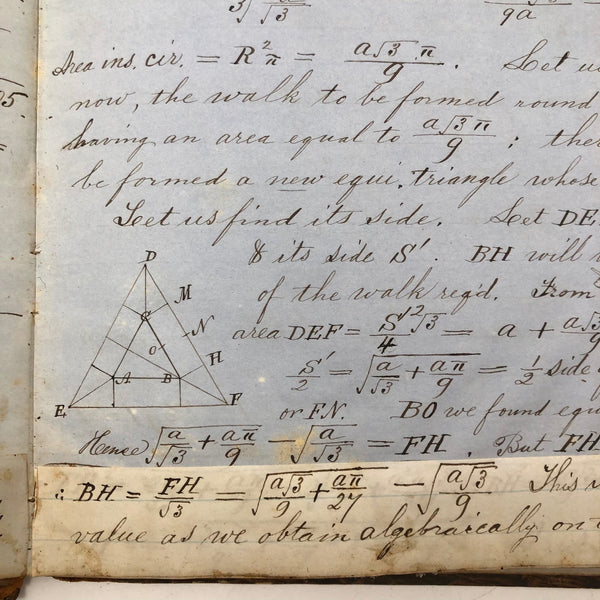 3√ a/√3   9a
Area ins. cir. = R²π = a√3.π/9. Let us
now, the walk to be formed round
having an area equal to a√3π/9; the
be formed a new equi. triangle whose
Let us find its side. Let DE
& its side S'. BH will
of the walk reqd. From
area DEF = S'²√3/4 = a + a√3/9
S'/2 = √(a/√3 + aπ/9) = ½ side
or F.N. BO we found equ
Hence √(a/√3 + aπ/9) − √(a/√3) = FH. But FH
∴ BH = FH/√3 = √(a√3/9 + aπ/27) − √(a√3/9) This
value as we obtain algebraically on
D
M
C
N
O
H
A
B
E
F
05.